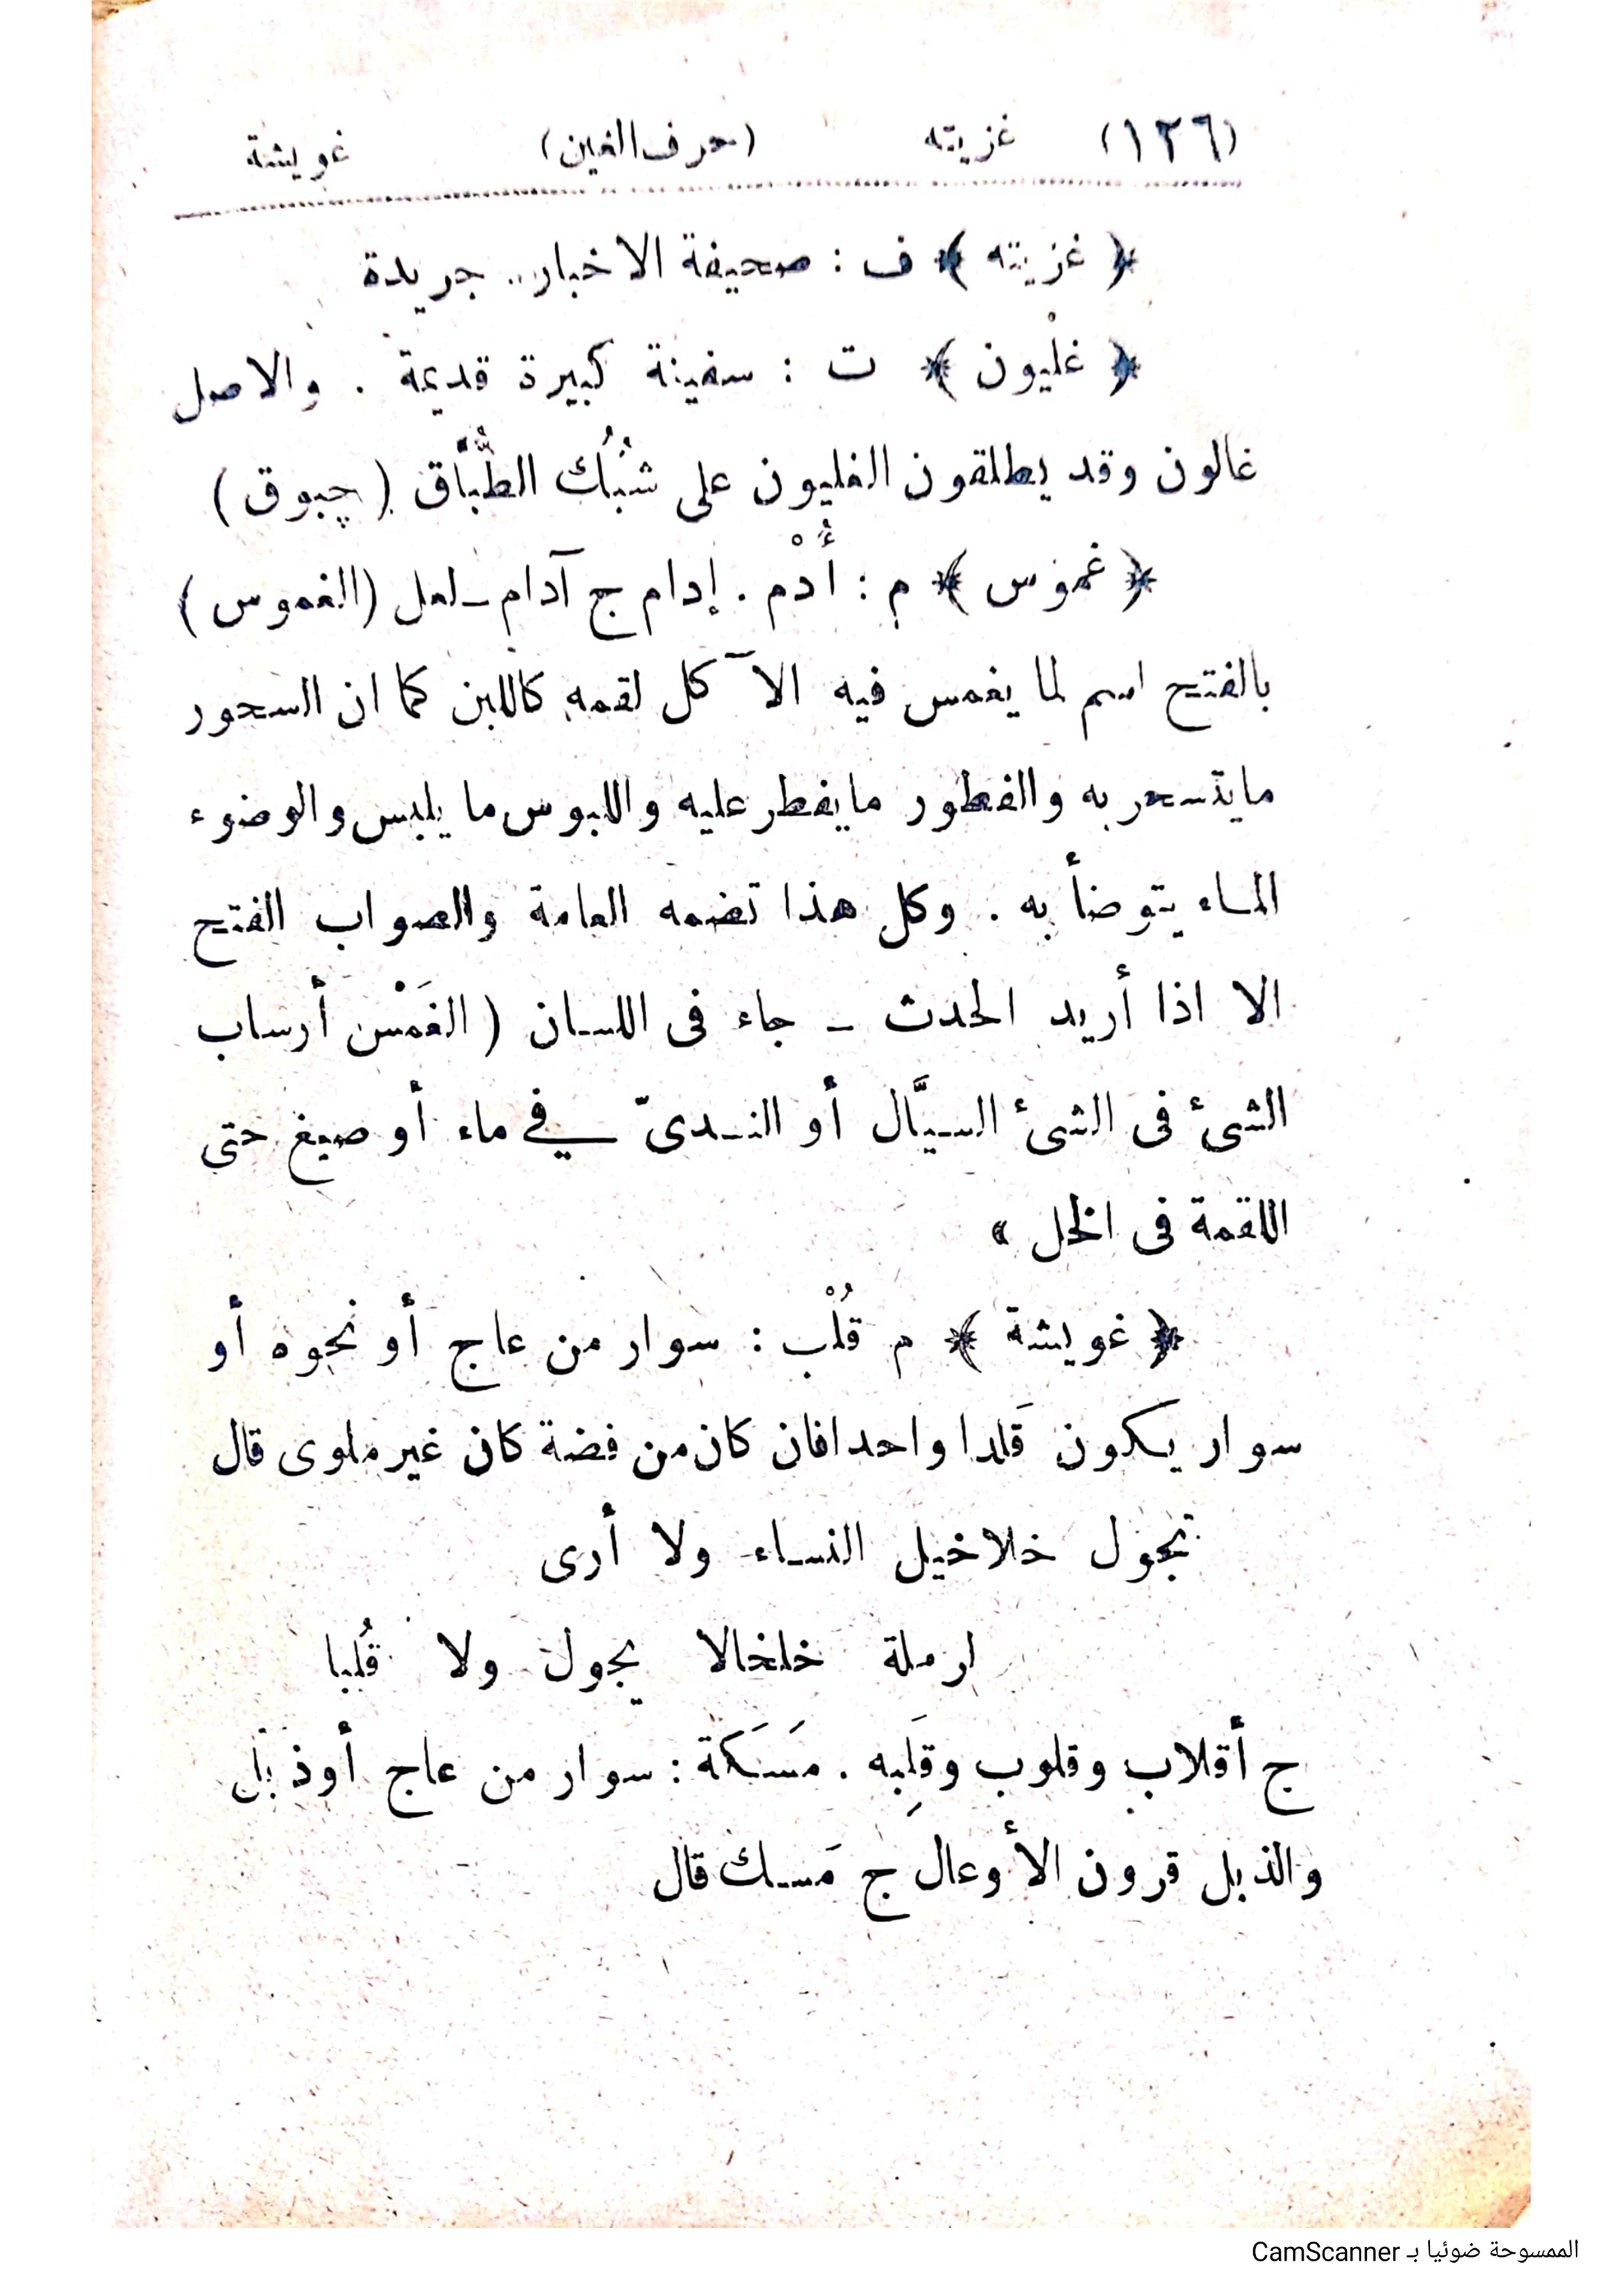 (١٢٦) غزيته (حرف الغين) غويشة
﴿ غزيته ﴾ ف : صحيفة الاخبار . جريدة
﴿ غلْيون ﴾ ت : سفينة كبيرة قديمة . والاصل
غالون وقد يطلقون الغليون على شُبُك الطُّبَّاق ( چبوق )
﴿ غموس ﴾ م : أُدْم . إدام ج آدام ـ لعل (الغموس )
بالفتح اسم لما يغمس فيه الآ كل لقمه كاللبن كما ان السحور
ما يتسحر به والفطور ما يفطر عليه واللبوس ما يلبس والوضوء
الماء يتوضأ به . وكل هذا تضمه العامة والصواب الفتح
الا اذا أريد الحدث ـ جاء فى اللسان ( الغَمْس أرساب
الشئ فى الشئ السيَّال أو الندىّ في ماء أو صبغ حتى
اللقمة فى الخل »
﴿ غويشة ﴾ م قُلْب : سوار من عاج أو نحوه أو
سوار يكون قَلدا واحدا فان كان من فضة كان غير ملوى قال
تجول خلاخيل النساء ولا أرى
ارملة خلخالا يجول ولا قُلبا
ج أقلاب وقلوب وقَلِبه . مَسَكَة : سوار من عاج أو ذبل
والذبل قرون الأوعال ج مَسك قال
الممسوحة ضوئيا بـ CamScanner